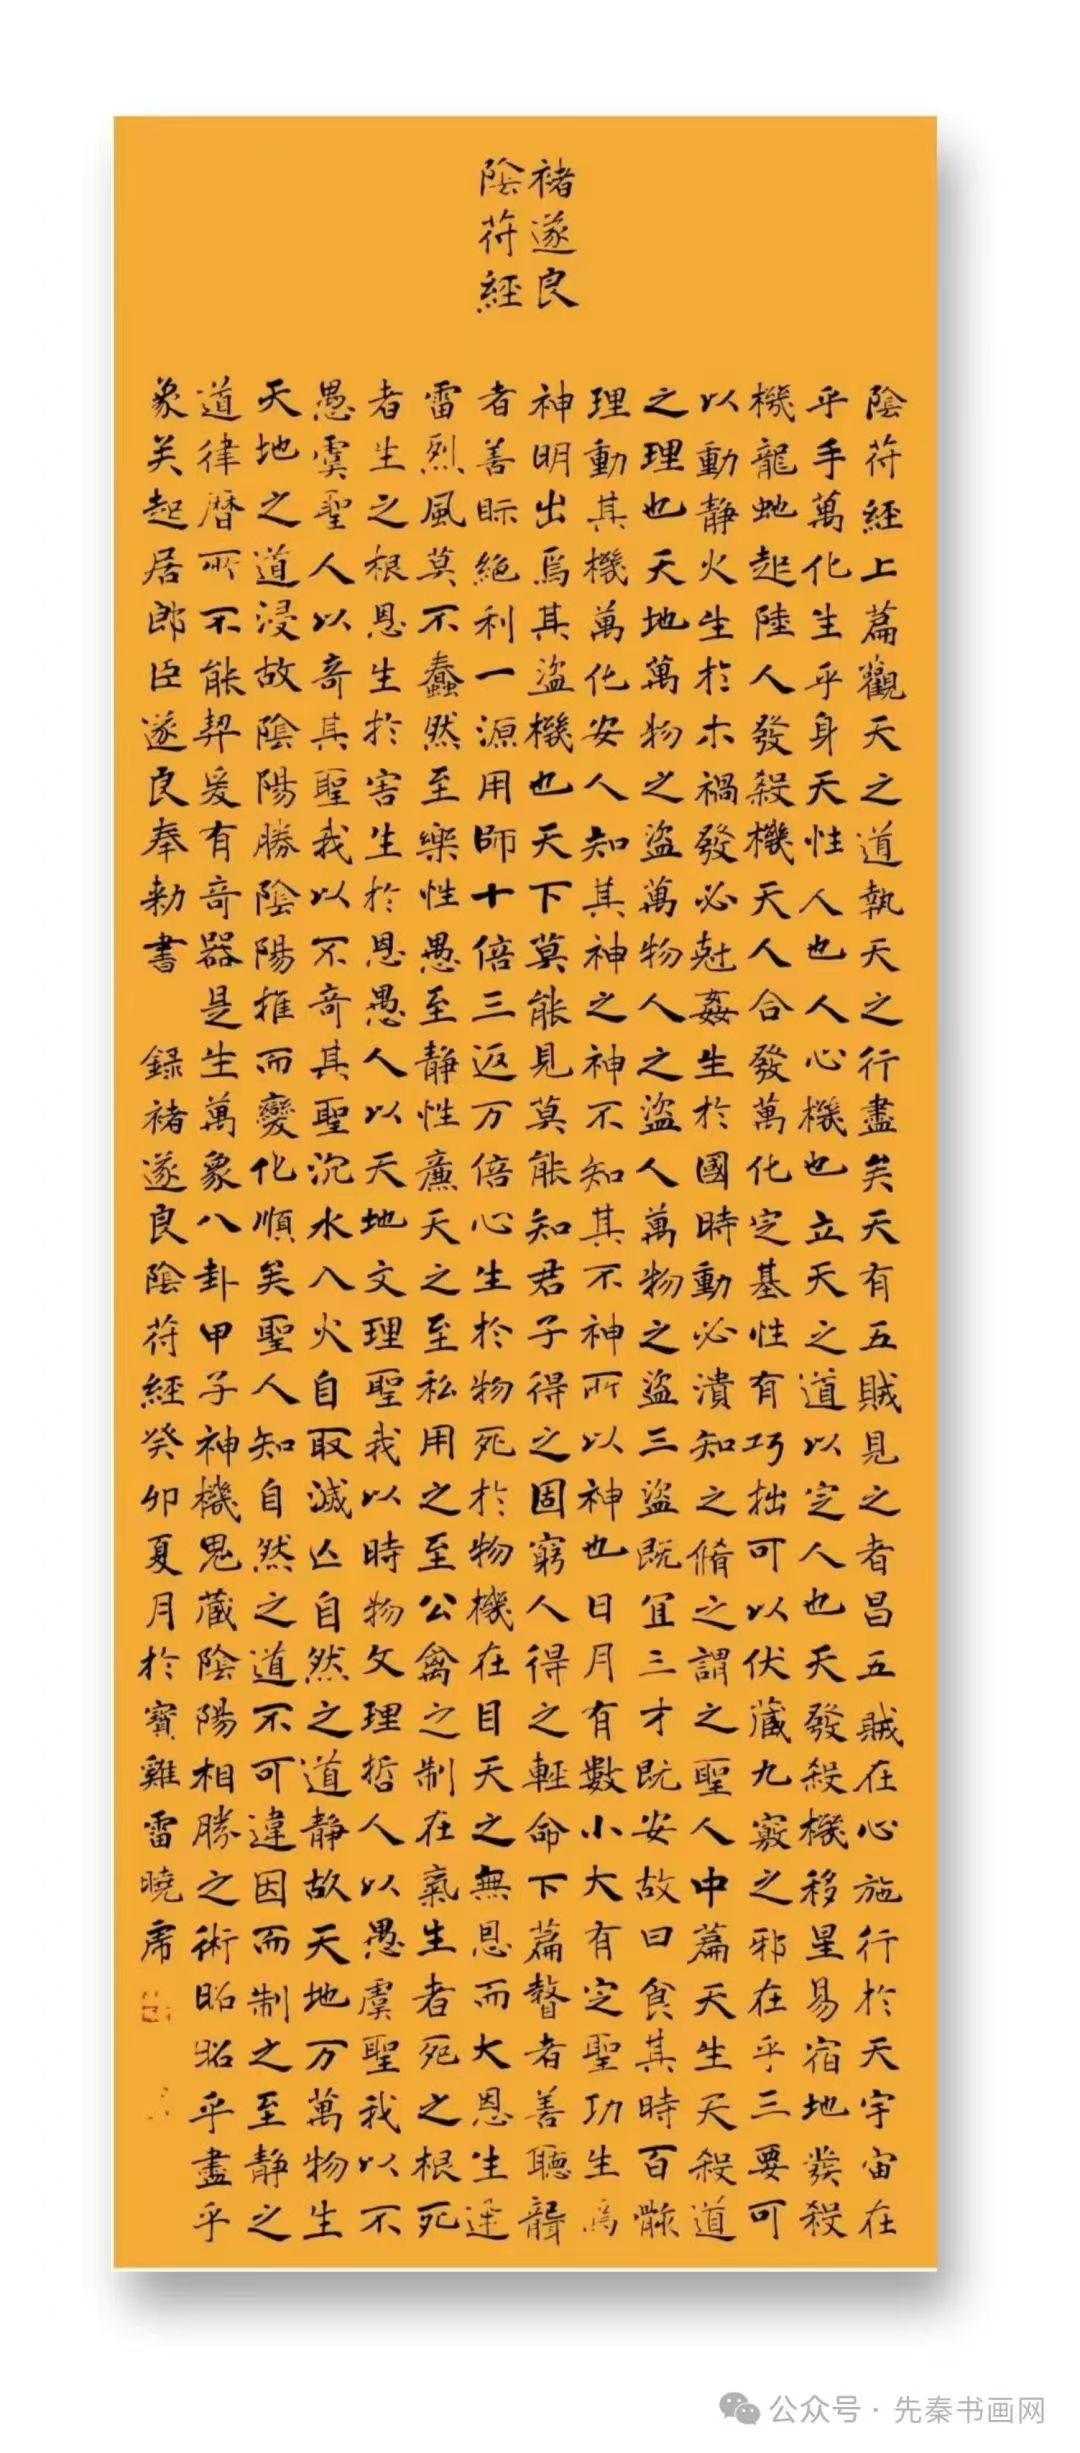 褚遂良
陰符經
陰符經上篇觀天之道執天之行盡矣天有五賊見之者昌五賊在心施行於天宇宙在
乎手萬化生乎身天性人也人心機也立天之道以定人也天發殺機移星易宿地發殺
機龍虵起陸人發殺機天人合發萬化定基性有巧拙可以伏藏九竅之邪在乎三要可
以動靜火生於木禍發必尅姦生於國時動必潰知之脩之謂之聖人中篇天生天殺道
之理也天地萬物之盜萬物人之盜人萬物之盜三盜既宜三才既安故曰食其時百骸
理動其機萬化安人知其神之神不知其不神所以神也日月有數小大有定聖功生焉
神明出焉其盜機也天下莫能見莫能知君子得之固窮人得之輕命下篇瞽者善聽聾
者善眎絕利一源用師十倍三返万倍心生於物死於物機在目天之無恩而大恩生迅
雷烈風莫不蠢然至樂性愚至靜性廉天之至私用之至公禽之制在氣生者死之根死
者生之根恩生於害生於恩愚人以天地文理聖我以時物文理哲人以愚虞聖我以不
愚虞聖人以奇其聖我以不奇其聖沉水入火自取滅亡自然之道靜故天地万萬物生
天地之道浸故陰陽勝陰陽推而變化順矣聖人知自然之道不可違因而制之至靜之
道律曆所不能契爰有奇器是生萬象八卦甲子神機鬼藏陰陽相勝之術昭昭乎盡乎
象矣起居郎臣遂良奉勅書 錄褚遂良陰符經癸卯夏月於寶雞雷曉
公众号·先秦书画网